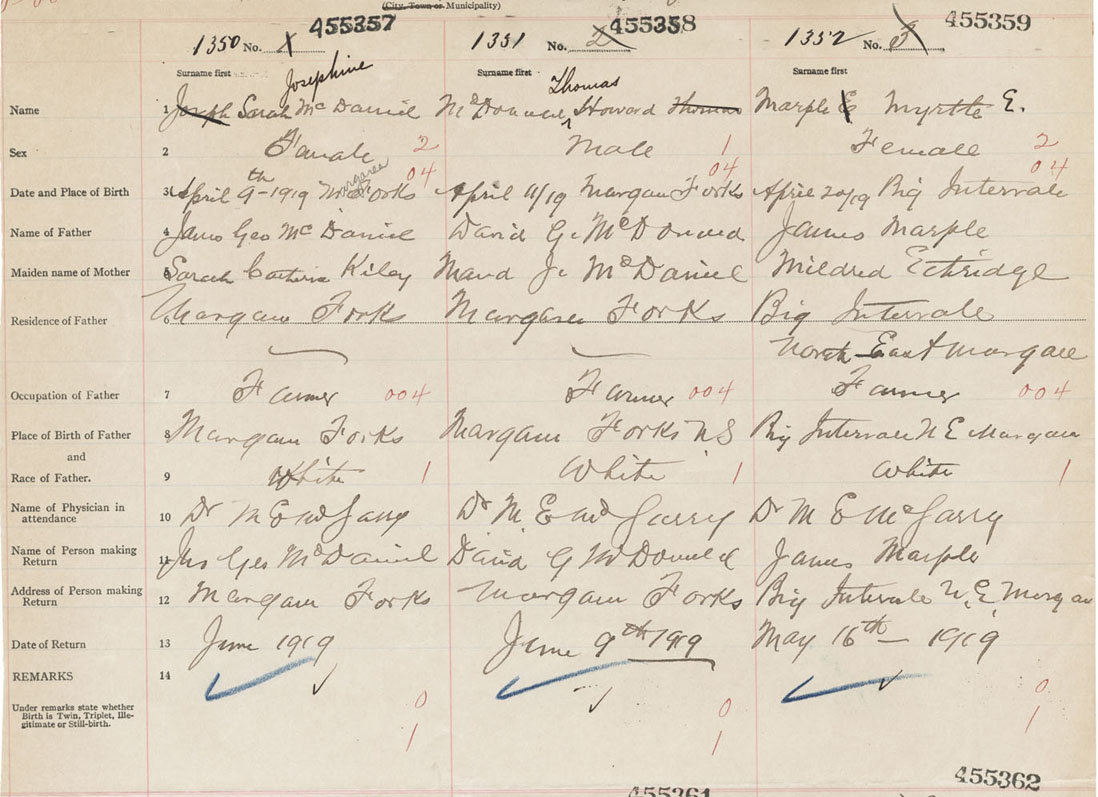 (City, Town or Municipality)
455357 455358 455359
1350 No. 1 1351 No. 2 1352 No. 3
Surname first Surname first Surname first
Josephine Thomas
Name 1 Joseph Sarah McDaniel McDonald, Howard Thomas Marple E Myrtle E.
Sex 2 Female 2 Male 1 Female 2
04 04 04
Date and Place of Birth 3 April 9th-1919 Margaree Forks April 11/19 Margaree Forks April 20/19 Big Intervale
Name of Father 4 James Geo McDaniel David G. McDonald James Marple
Maiden name of Mother 5 Sarah Kiley Maud J. McDaniel Mildred Ethridge
Residence of Father 6 Margaree Forks Margaree Forks Big Intervale
North East Margaree
Occupation of Father 7 Farmer 004 Farmer 004 Farmer 004
Place of Birth of Father 8 Margaree Forks Margaree Forks N S Big Intervale N E Margaree
and
Race of Father. 9 White 1 White 1 White 1
Name of Physician in
attendance 10 Dr M E McGarry Dr M. E McGarry Dr M E McGarry
Name of Person making
Return 11 Jas Geo McDaniel David G McDonald James Marple
Address of Person making
Return 12 Margaree Forks Margaree Forks Big Intervale N.E Margaree
Date of Return 13 June 1919 June 9th 1919 May 16th – 1919
REMARKS 14
0 0 0
Under remarks state whether
Birth is Twin, Triplet, Ille-
gitimate or Still-birth.
1 1 1
455361 455362